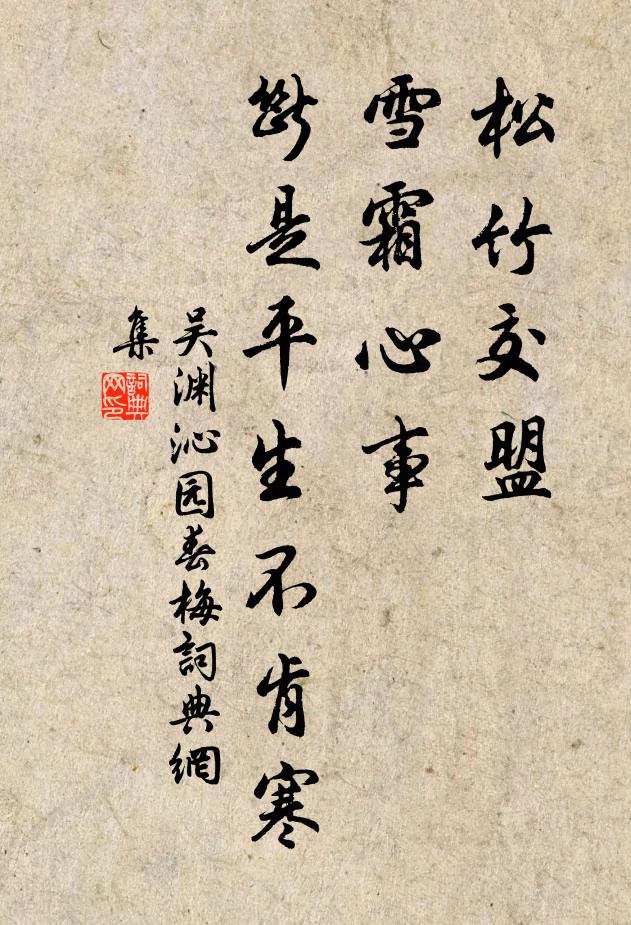 松竹交盟
雪霜心事
斷是平生不肯寒
吴渊沁园春梅詞典網
集
詞典网印